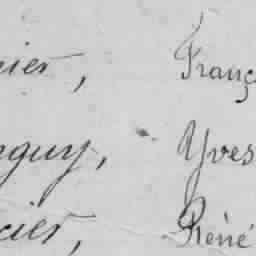 cier, Franç
nguy, Yves
cier, Réné